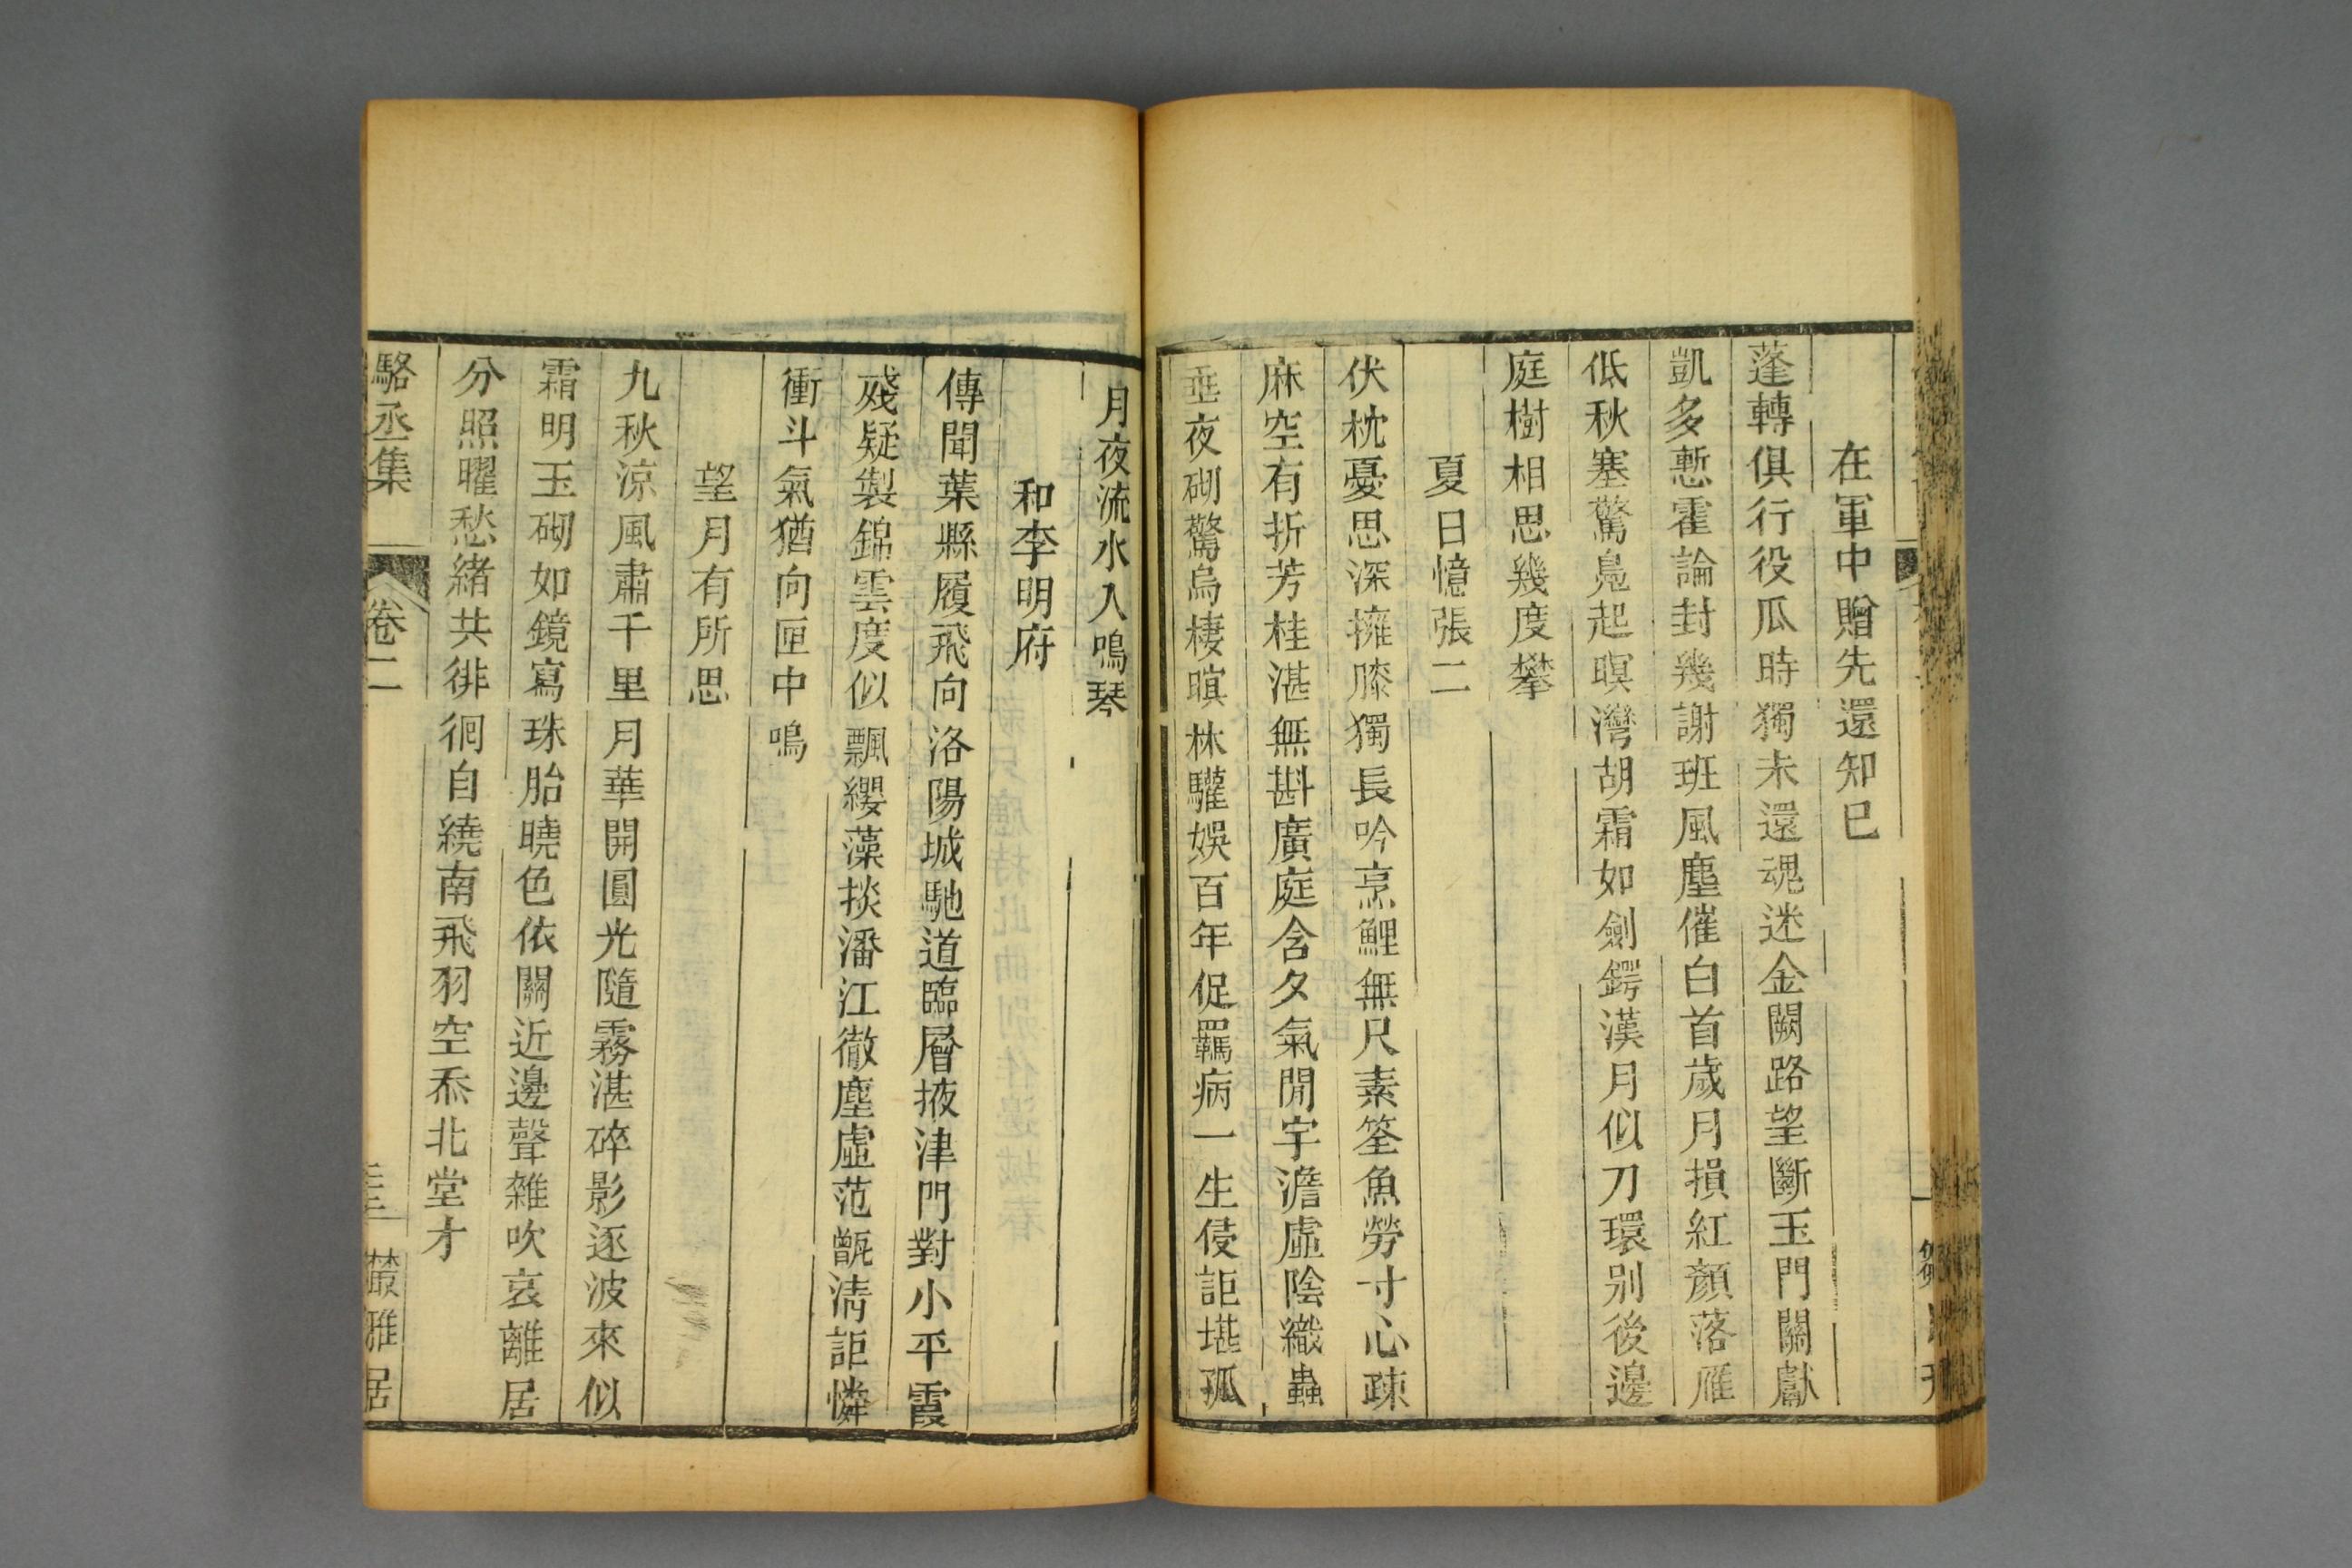 在軍中贈先還知巳
蓬轉俱行役瓜時獨未還魂迷金闕路望斷玉門關獻
凱多慙霍論封幾謝班風塵催白首歲月損紅顏落雁
低秋塞驚鳧起暝灣胡霜如劍鍔漢月似刀環别後邊
庭樹相思幾度攀
夏日憶張二
伏枕憂思深擁膝獨長吟烹鯉無尺素筌魚勞寸心疎
麻空有折芳桂湛無斟廣庭含夕氣閒宇澹虛陰織蟲
垂夜砌驚烏棲暝林驩娛百年促羈病一生侵詎堪孤
月夜流水入鳴琴
和李明府
傳聞葉縣履飛向洛陽城馳道臨層掖津門對小平霞
殘疑製錦雲度似飄纓藻掞潘江徹塵虛范甑淸詎憐
衝斗氣猶向匣中鳴
望月有所思
九秋涼風肅千里月華開圓光隨霧湛碎影逐波來似
霜明玉砌如鏡寫珠胎曉色依關近邊聲雜吹哀離居
分照曜愁緒共徘徊自繞南飛羽空忝北堂才
駱丞集
卷二
叢雅居